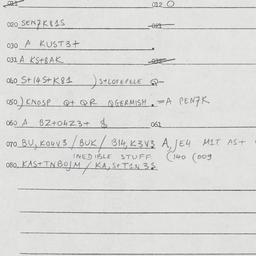 012 O
020 SEN7K81S
030 A KUST3+
031 A KS+8AK
040 S+14S+K81 )S+LOFEFELE Q-
050 )KNOSP Q+ QR QGERMISH. =A PEN7K
060 A BZ+04Z3+ 061
070 BU, K04V3 / BUK / 814, K3V3 A, JE4 M1T AS+
INEDIBLE STUFF (140 (009
080 KAS+TNBOJM / KA, S+T1N3S